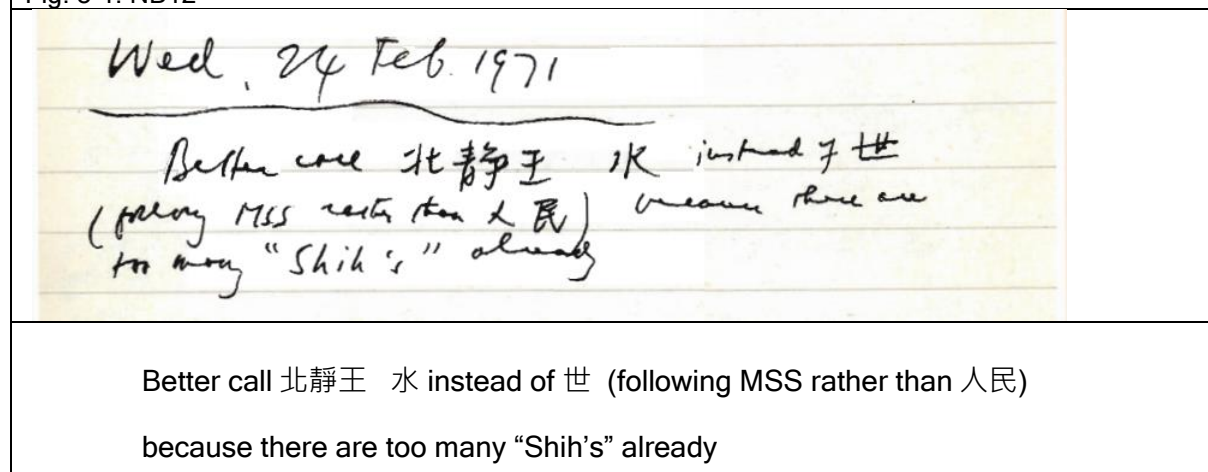 Fig. 3-1: NB12
Wed. 24 Feb. 1971
Better call 北静王 水 instead of 世
(follong MSS rather than 人民) because there are
too many "Shih's" already
Better call 北靜王 水 instead of 世 (following MSS rather than 人民)
because there are too many “Shih’s” already